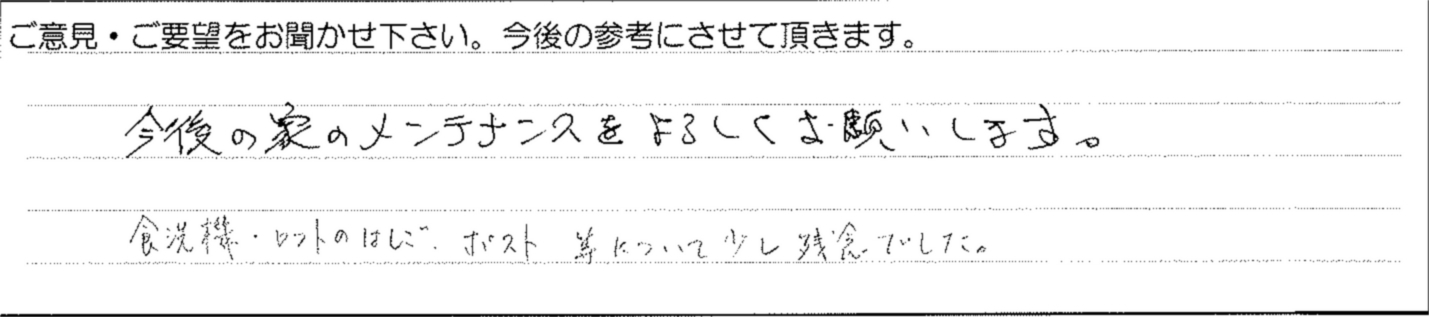 ご意見・ご要望をお聞かせ下さい。今後の参考にさせて頂きます。
今後の家のメンテナンスをよろしくお願いします。
食洗機・ロフトのはしご、ポスト 等について少し残念でした。